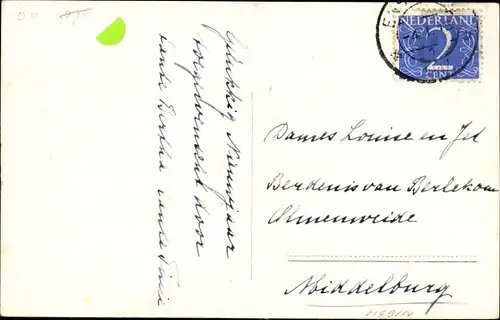 NEDERLAND
2
CENT
Gelukkig Nieuwjaar
toegewenscht door
tante Bertha tante Sini
Dames Louise en Jet
Berdenis van Berlekom
Olmenweide
Middelburg